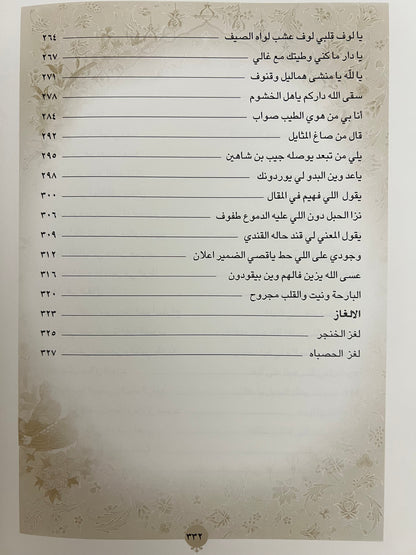 يا لوف قلبي لوف عشب لواه الصيف ٢٦٤
يا دار ما كني وطيتك مع غالي ٢٦٧
يا للّه يا منشى هماليل وقنوف ٢٧١
سقى الله داركم ياهل الخشوم ٢٧٨
أنا بي من هوي الطيب صواب ٢٨٤
قال من صاغ المثايل ٢٩٢
يلي من تبعد يوصله جيب بن شاهين ٢٩٥
ياعد وين البدو لي يوردونك ٢٩٨
يقول اللي فهيم في المقال ٣٠٠
نزا الحبل دون اللي عليه الدموع طفوف ٣٠٦
يقول المعني لي قند حاله القندي ٣٠٩
وجودي على اللي حط ياقصي الضمير اعلان ٣١٢
عسى الله يزين فالهم وين بيقودون ٣١٦
البارحة ونيت والقلب مجروح ٣٢٠
الالغاز ٣٢٣
لغز الخنجر ٣٢٥
لغز الحصباه ٣٢٧
٣٣٢